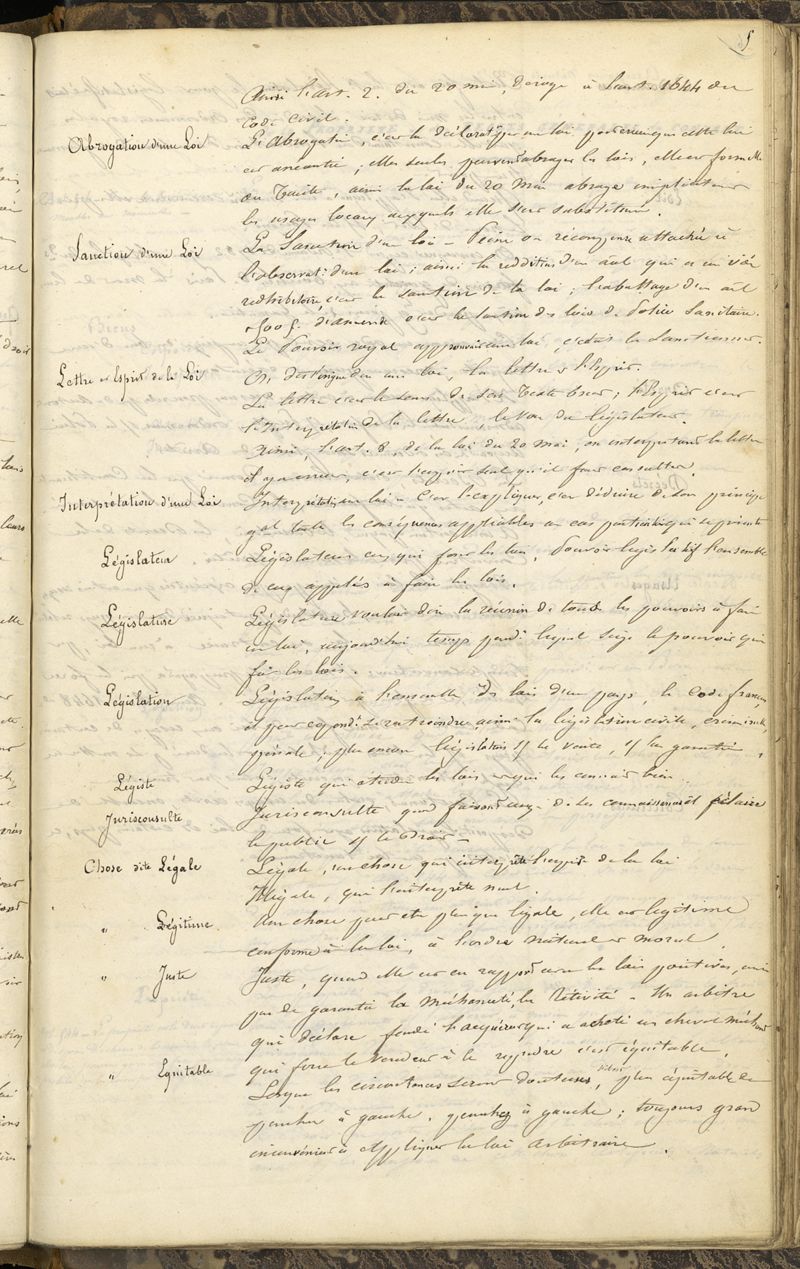 5
Ainsi l'art. 2. du 20 mai, déroge à l'art. 1644 du
Code civil.
Abrogation d'une Loi
L'Abrogation, c'est la déclarat. par une loi, postérieure que cette loi
est anéantie; elles seules peuvent abroger les lois, elle est formelle
ou Tacite, ainsi la loi du 20 mai abroge implicitement
les usages locaux auxquels elle s'est substituée.
Sanction d'une Loi
La Sanction d'une loi = Peine ou récompense attachée à
l'observat. d'une loi; ainsi la reddition d'un anl qui a un vice
redhibitoire, c'est la sanction de la loi; l'abattage d'un anl
500 f. d'amende c'est la sanction des lois de Police Sanitaire.
Le Pouvoir royal approuvait une loi, c'était la Sanctionner.
Lettre et Esprit de la Loi
On distingue dans une loi, la lettre et l'Esprit.
La lettre c'est le sens de son Texte ; l'Esprit c'est
l'Interprétation de la lettre, le vœu du législateur.
Ainsi, l'art. 8, de la loi du 20 mai, en interprétant la lettre
il y a erreur, c'est l'esprit seul qu'il faut consulter.
Interprétation d'une Loi
Interprétation une loi = C'est l'expliquer, c'est déduire de son principe
gal toutes les conséquences applicables au cas particulier qui se présente
Législateur
Législateur ceux qui font les lois, Pouvoir législatif l'ensemble
de ceux appelés à faire les lois.
Législature
Législature voulait dire la réunion de tous les pouvoirs à faire
une loi, aujourd'hui temps pendt lequel siège le pouvoir qui
fait les lois.
Législation
Législation à l'ensemble des lois d'un pays, le Code français,
il peut cepend. se restreindre, ainsi la législation civile, criminelle,
spéciale; plus encore législation s/ la vente, s/ la garantie.
Légiste
Légiste qui étudie les lois et qui les connait bien.
Jurisconsulte
Jurisconsulte quand faisant usage de ses connaissances il éclaire
le public s/ le Droit =
Chose dite Légale
Légale, une chose qui interprète l'esprit de la loi
Illégale, qui l'interprète mal.
" Légitime
Une chose peut être plus que légale, elle est légitime
conforme à la loi, à l'ordre naturel et moral.
" Juste
Juste, quand elle est en rapport avec les lois positives, ainsi
pas de garantie la méchanceté, la rétivité = Un arbitre
qui déclare fondé l'acquéreur qui a acheté un cheval méchant
" Equitable
qui force le vendeur à le reprendre c'est équitable.
Lorsque les circonstances seront douteuses, plus équitable de
pencher à gauche, penchez à gauche; toujours grand
inconvénient à appliquer la loi arbitraire.